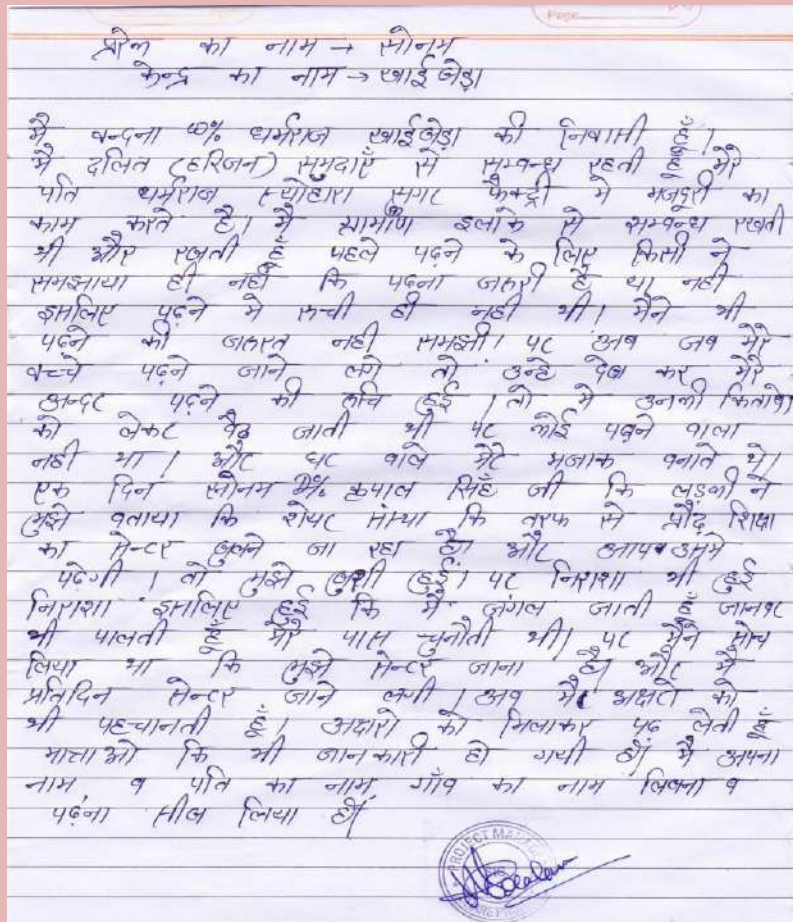 Page
प्रेरक का नाम → सोनम
केन्द्र का नाम → खाईखेड़ा
मै वन्दना w/o धर्मराज खाईखेड़ा की निवासी हूँ।
मै दलित (हरिजन) समुदाएँ से सम्वन्ध रहती हूँ मेरे
पति धर्मराज स्योहारा सुगर फैक्ट्री मे मजदूरी का
काम करते है। मै ग्रामीण इलाके से सम्वन्ध रखती
थी और रखती हूँ पहले पढ़ने के लिए किसी ने
समझाया ही नही कि पढना जरुरी है या नही
इसलिए पढ़ने मे रुची ही नही थी। मैने भी
पढ़ने की जरुरत नही समझी। पर अव जव मेरे
वच्चे पढ़ने जाने लगे तो उन्हे देख कर मेरे
अन्दर पढ़ने की रुचि हुई। तो मे उनकी कितावे
को लेकर बैठ जाती थी पर कोई पढाने वाला
नही था। और घर वाले मेरे मजाक वनाते थे।
एक दिन सोनम D/o कृपाल सिहँ जी कि लड़की ने
मुझे वताया कि शेयर संस्था कि तरफ से प्रौढ़ शिक्षा
का सेन्टर खुलने जा रहा है। और आप उसमे
पढेगी। तो मुझे खुशी हुई। पर निराशा भी हुई
निराशा इसलिए हुई कि मै जंगल जाती हूँ जानवर
भी पालती हूँ मेरे पास चुनौती थी। पर मैने सोच
लिया था कि मुझे सेन्टर जाना है। और मै
प्रतिदिन सेन्टर जाने लगी। अव मै अक्षरो को
भी पहचानती हूँ। अक्षरो को मिलाकर पढ लेती हूँ
मात्राओ कि भी जानकारी हो गयी है। मै अपना
नाम, व पति का नाम, गाँव का नाम लिखना व
पढ़ना सीख लिया है।
PROJECT MANAGER